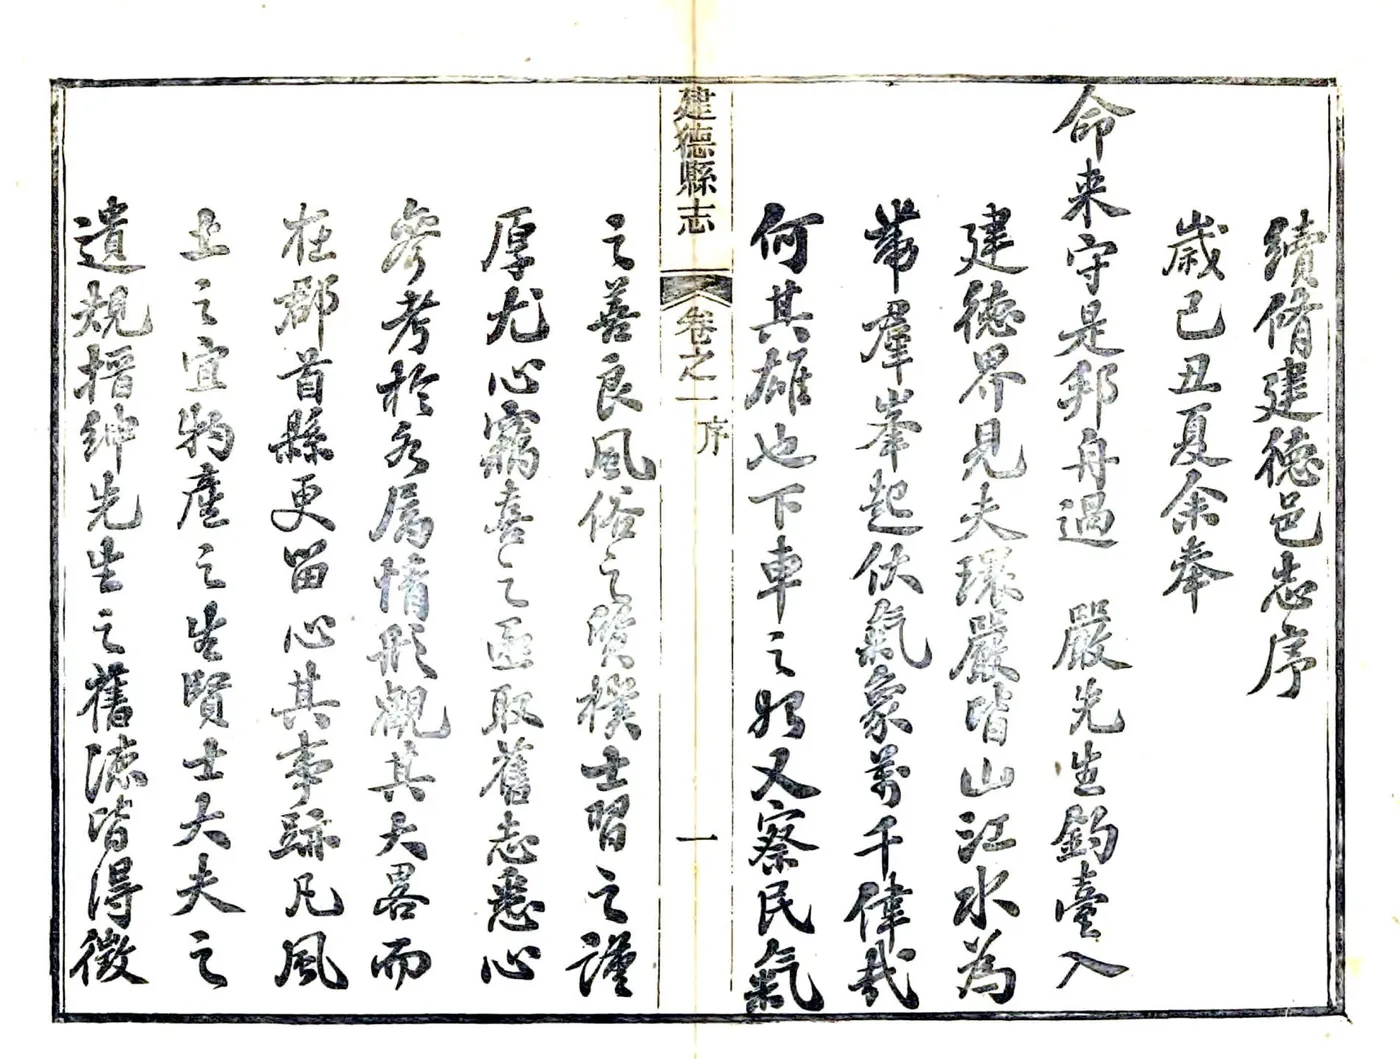 續脩建德邑志序
歲己丑夏余奉
命来守是邦舟過 嚴先生釣臺入
建德界見夫環嚴皆山江水為
帶羣峯起伏氣象萬千偉哉
何其雄也下車之始又察民氣
建德縣志
卷之一
序
一
之善良風俗之質樸士習之謹
厚尤心竊喜之亟取舊志悉心
參考於各属情形觀其大畧而
在郡首縣更留心其事跡凡風
土之宜物產之生賢士大夫之
遺規搢紳先生之舊德皆得徵